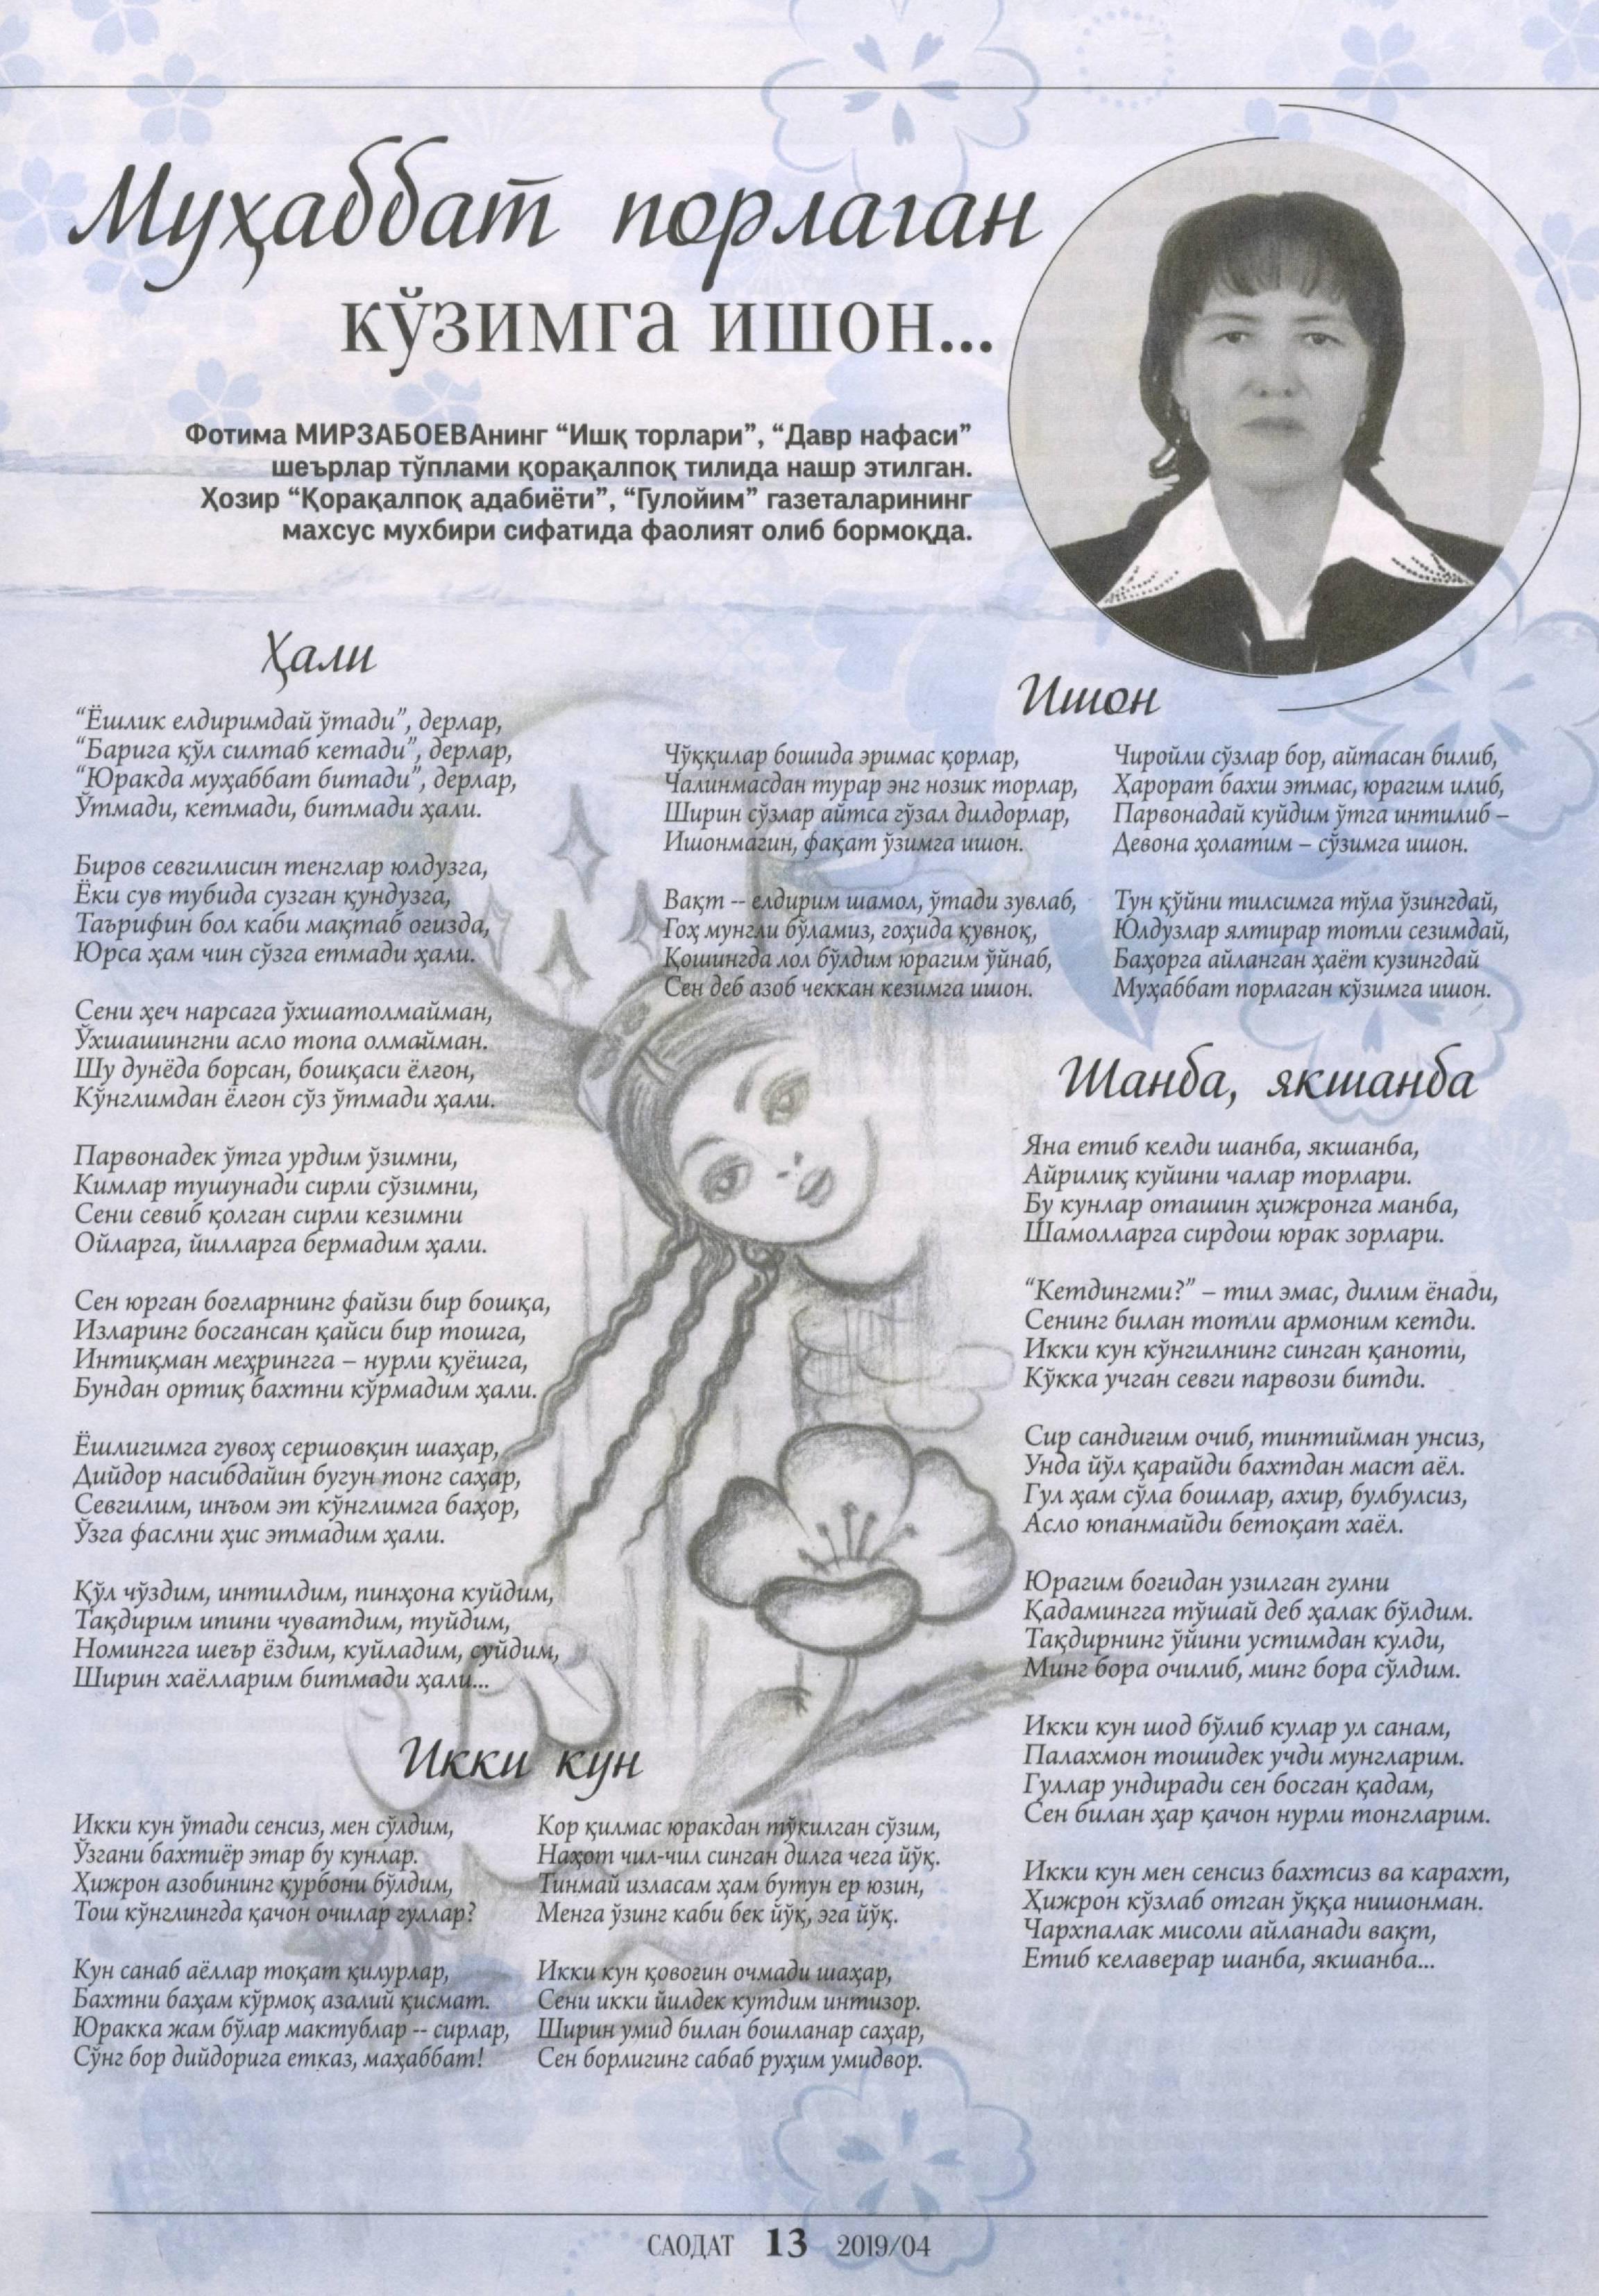 Муҳаббат порлаган
кўзимга ишон...
Фотима МИРЗАБОЕВАнинг “Ишқ торлари”, “Давр нафаси”
шеърлар тўплами қорақалпоқ тилида нашр этилган.
Ҳозир “Қорақалпоқ адабиёти”, “Гулойим” газеталарининг
махсус мухбири сифатида фаолият олиб бормоқда.
Ҳали
“Ёшлик елдиримдай ўтади”, дерлар,
“Барига қўл силтаб кетади”, дерлар,
“Юракда муҳаббат битади”, дерлар,
Ўтмади, кетмади, битмади ҳали.
Биров севгилисин тенглар юлдузга,
Ёки сув тубида сузган қундузга,
Таърифин бол каби мақтаб оғизда,
Юрса ҳам чин сўзга етмади ҳали.
Сени ҳеч нарсага ўхшатолмайман,
Ўхшашингни асло топа олмайман.
Шу дунёда борсан, бошқаси ёлғон,
Кўнглимдан ёлғон сўз ўтмади ҳали.
Парвонадек ўтга урдим ўзимни,
Кимлар тушунади сирли сўзимни,
Сени севиб қолган сирли кезимни
Ойларга, йилларга бермадим ҳали.
Сен юрган боғларнинг файзи бир бошқа,
Изларинг босгансан қайси бир тошга,
Интиқман меҳрингга – нурли қуёшга,
Бундан ортиқ бахтни кўрмадим ҳали.
Ёшлигимга гувоҳ сершовқин шаҳар,
Дийдор насибдайин бугун тонг саҳар,
Севгилим, инъом эт кўнглимга баҳор,
Ўзга фаслни ҳис этмадим ҳали.
Қўл чўздим, интилдим, пинҳона куйдим,
Тақдирим ипини чуватдим, туйдим,
Номингга шеър ёздим, куйладим, суйдим,
Ширин хаёлларим битмади ҳали...
Ишон
Чўққилар бошида эримас қорлар,
Чалинмасдан турар энг нозик торлар,
Ширин сўзлар айтса гўзал дилдорлар,
Ишонмагин, фақат ўзимга ишон.
Вақт -- елдирим шамол, ўтади зувлаб,
Гоҳ мунгли бўламиз, гоҳида қувноқ,
Қошингда лол бўлдим юрагим ўйнаб,
Сен деб азоб чеккан кезимга ишон.
Чиройли сўзлар бор, айтасан билиб,
Ҳарорат бахш этмас, юрагим илиб,
Парвонадай куйдим ўтга интилиб –
Девона ҳолатим – сўзимга ишон.
Тун қўйни тилсимга тўла ўзингдай,
Юлдузлар ялтирар тотли сезимдай,
Баҳорга айланган ҳаёт кузингдай
Муҳаббат порлаган кўзимга ишон.
Шанба, якшанба
Яна етиб келди шанба, якшанба,
Айрилиқ куйини чалар торлари.
Бу кунлар оташин ҳижронга манба,
Шамолларга сирдош юрак зорлари.
“Кетдингми?” – тил эмас, дилим ёнади,
Сенинг билан тотли армоним кетди.
Икки кун кўнгилнинг синган қаноти,
Кўкка учган севги парвози битди.
Сир сандиғим очиб, тинтийман унсиз,
Унда йўл қарайди бахтдан маст аёл.
Гул ҳам сўла бошлар, ахир, булбулсиз,
Асло юпанмайди бетоқат хаёл.
Юрагим боғидан узилган гулни
Қадамингга тўшай деб ҳалак бўлдим.
Тақдирнинг ўйини устимдан кулди,
Минг бора очилиб, минг бора сўлдим.
Икки кун шод бўлиб кулар ул санам,
Палахмон тошидек учди мунгларим.
Гуллар ундиради сен босган қадам,
Сен билан ҳар қачон нурли тонгларим.
Икки кун мен сенсиз бахтсиз ва карахт,
Ҳижрон кўзлаб отган ўққа нишонман.
Чархпалак мисоли айланади вақт,
Етиб келаверар шанба, якшанба...
Икки кун
Икки кун ўтади сенсиз, мен сўлдим,
Ўзгани бахтиёр этар бу кунлар.
Ҳижрон азобининг қурбони бўлдим,
Тош кўнглингда қачон очилар гуллар?
Кун санаб аёллар тоқат қилурлар,
Бахтни баҳам кўрмоқ азалий қисмат.
Юракка жам бўлар мактублар -- сирлар,
Сўнг бор дийдорига етказ, маҳаббат!
Кор қилмас юракдан тўкилган сўзим,
Наҳот чил-чил синган дилга чега йўқ.
Тинмай изласам ҳам бутун ер юзин,
Менга ўзинг каби бек йўқ, эга йўқ.
Икки кун қовоғин очмади шаҳар,
Сени икки йилдек кутдим интизор.
Ширин умид билан бошланар саҳар,
Сен борлигинг сабаб руҳим умидвор.
САОДАТ 13 2019/04